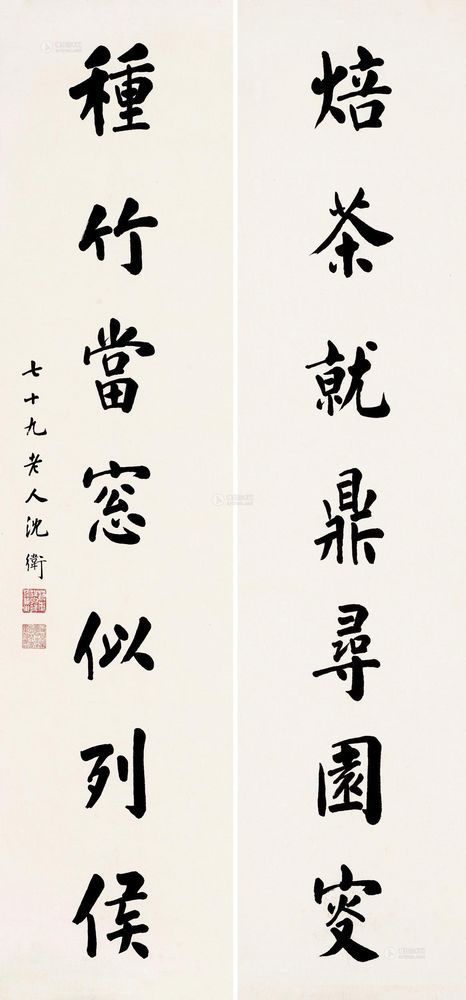 焙茶就鼎尋園叜
種竹當窓似列侯
七十九老人沈衛